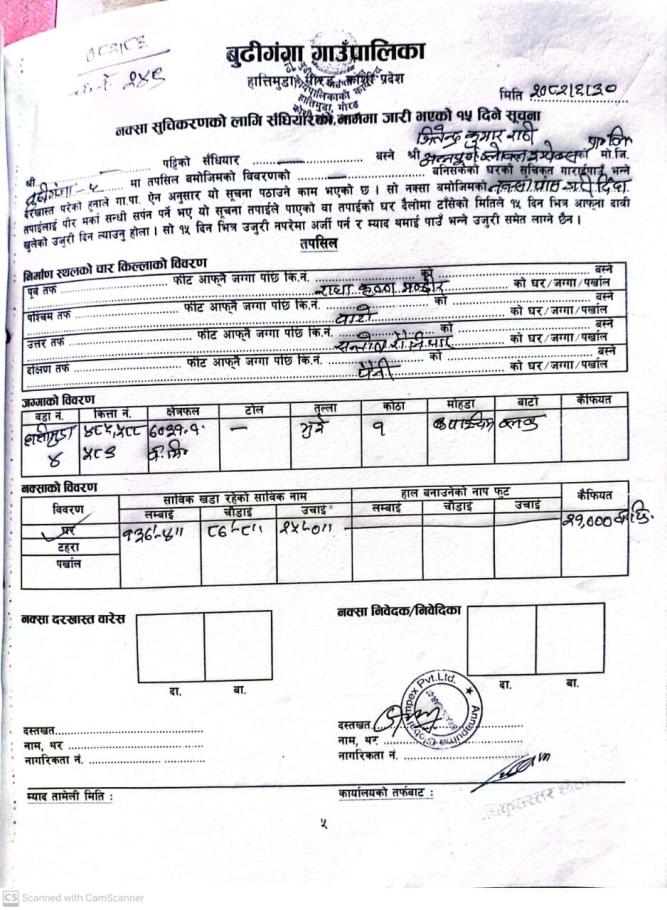 बुढीगंगा गाउँपालिका
हात्तिमुढा, मोरङ, कोशी प्रदेश
मिति २०८२।६।३०
नक्सा सुचिकरणको लागि संधियारको नाममा जारी भएको १५ दिने सूचना
जितेन्द्र कुमार
श्री पट्टिको संधियार बस्ने श्री को मो.जि.
बुढीगंगा - ५ मा तपसिल बमोजिमको विवरणको बनिसकेको घरको सुचिकृत गराईपाउँ भन्ने
दरखास्त परेको हुनाले गा.पा. ऐन अनुसार यो सूचना पठाउने काम भएको छ । सो नक्सा बमोजिमको
तपाईलाई पीर मर्का सन्धी सर्पन पर्ने भए यो सूचना तपाईले पाएको वा तपाईको घर दैलोमा टाँसेको मितिले १५ दिन भित्र आफ्ना दावी
खुलेको उजुरी दिन ल्याउनु होला । सो १५ दिन भित्र उजुरी नपरेमा अर्जी पर्न र म्याद थमाई पाउँ भन्ने उजुरी समेत लाग्ने छैन ।
तपसिल
निर्माण स्थलको चार किल्लाको विवरण
पूर्व तर्फ फीट आफ्नै जग्गा पछि कि.नं. को बस्ने
राधा कृष्ण मन्दीर को घर/जग्गा/पर्खाल
पश्चिम तर्फ फीट आफ्नै जग्गा पछि कि.नं. को बस्ने
बाटो को घर/जग्गा/पर्खाल
उत्तर तर्फ फीट आफ्नै जग्गा पछि कि.नं. को बस्ने
को घर/जग्गा/पर्खाल
दक्षिण तर्फ फीट आफ्नै जग्गा पछि कि.नं. को बस्ने
पैनी को घर/जग्गा/पर्खाल
जग्गाको विवरण
वडा नं. कित्ता नं. क्षेत्रफल टोल तल्ला कोठा मोहडा बाटो कैफियत
हात्तीमुढा ४८५,४८८ - भुई १
४ व.मि.
नक्साको विवरण
विवरण साविक खडा रहेको साविक नाम हाल बनाउनेको नाप फुट कैफियत
लम्बाई चौडाई उचाई लम्बाई चौडाई उचाई
घर १३६'-४" ८६'-८" २५'-०"
टहरा
पर्खाल
नक्सा दरखास्त वारेस
नक्सा निवेदक/निवेदिका
दा. बा. दा. बा.
Annapurna Global Impex Pvt.Ltd.
दस्तखत दस्तखत
नाम, थर नाम, थर
नागरिकता नं. नागरिकता नं.
म्याद तामेली मिति : कार्यालयको तर्फबाट :
५
CS Scanned with CamScanner